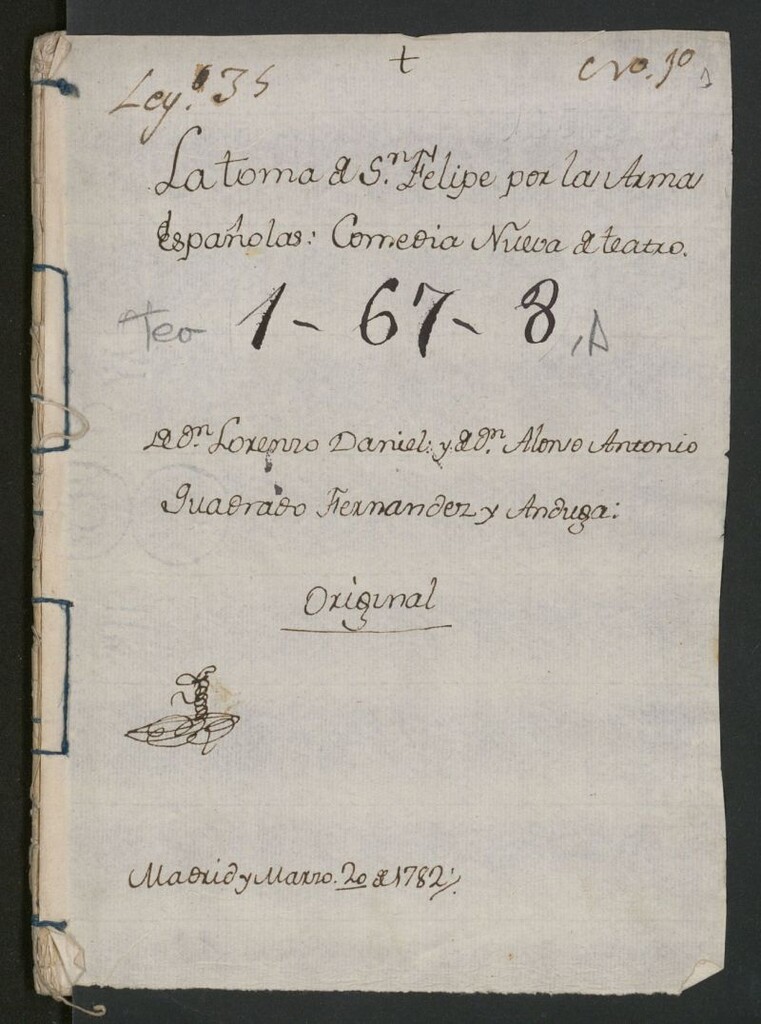 +
Leg.º 35
Nº. 1º
La toma de S.n Felipe por las Armas
Españolas: Comedia Nueva de teatro.
Tea 1-67-8, A
de dn. Lorenzo Daniel: y de dn. Alonso Antonio
Quadrado Fernandez y Anduga:
Original
Madrid y Marzo. 20 de 1782